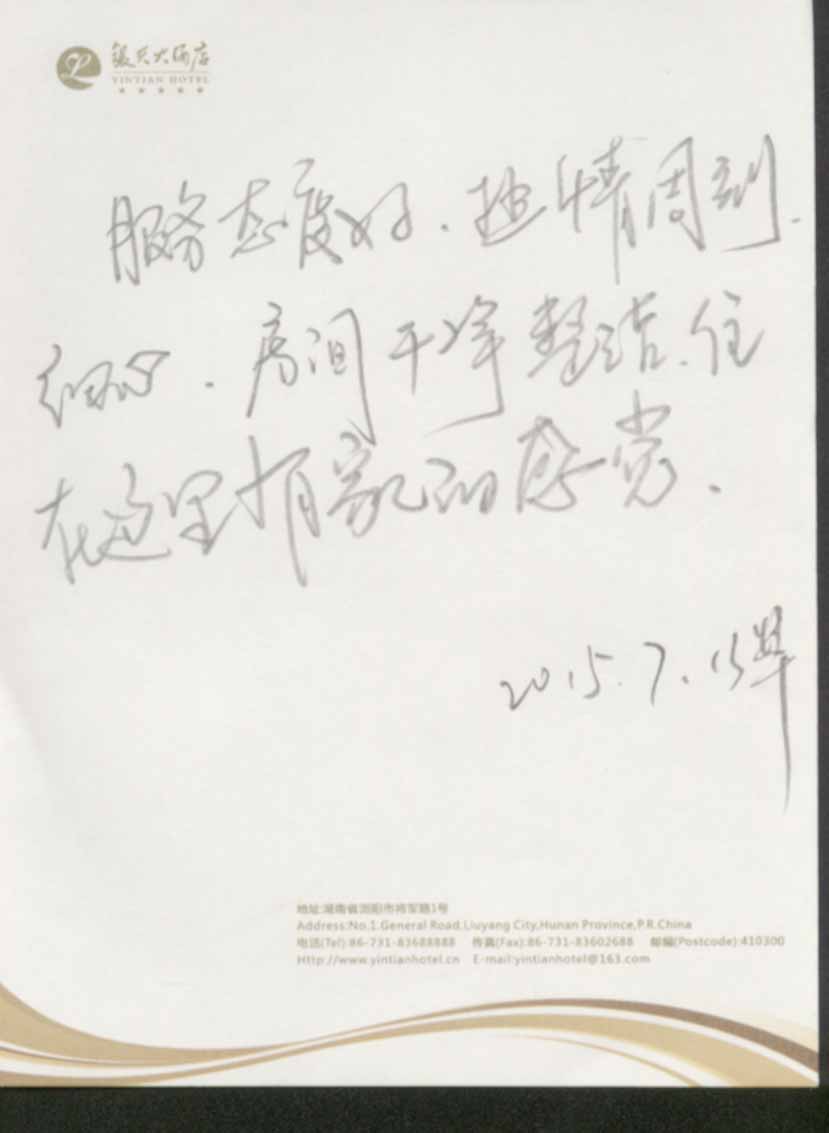 银天大酒店
YINTIAN HOTEL
服务态度好.热情周到.
细心.房间干净整洁.住
在这里有家的感觉.
2015.7.13
地址:湖南省浏阳市将军路1号
Address:No.1.General Road,Liuyang City,Hunan Province,P.R.China
电话(Tel):86-731-83688888 传真(Fax):86-731-83602688 邮编(Postcode):410300
Http://www.yintianhotel.cn E-mail:yintianhotel@163.com